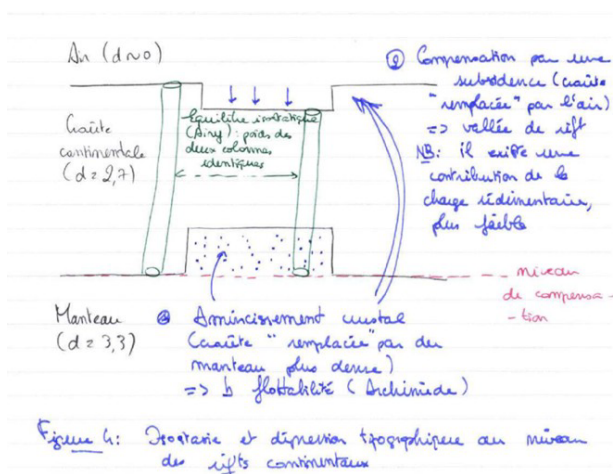 Air (d~0)
Croûte
continentale
(d = 2,7)
Équilibre isostatique
(Airy) : poids des
deux colonnes
identiques
② Compensation par une
subsidence (croûte
"remplacée" par l'air)
=> vallée de rift
NB: il existe une
contribution de la
charge sédimentaire,
plus faible
niveau
de compensa-
-tion
Manteau
(d = 3,3)
Amincissement crustal
(croûte "remplacée" par du
manteau plus dense)
=> ↓ flottabilité (Archimède)
Figure 4: Isostasie et dépression topographique au niveau
des rifts continentaux